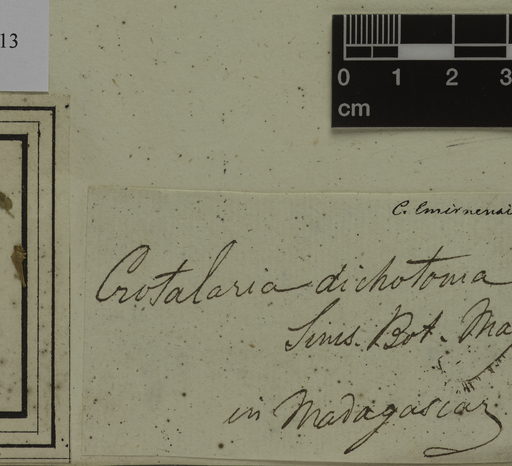 13
0 1 2 3
cm
C. Emirnensi
Crotalaria dichotoma
Sims. Bot. Ma
in Madagascar